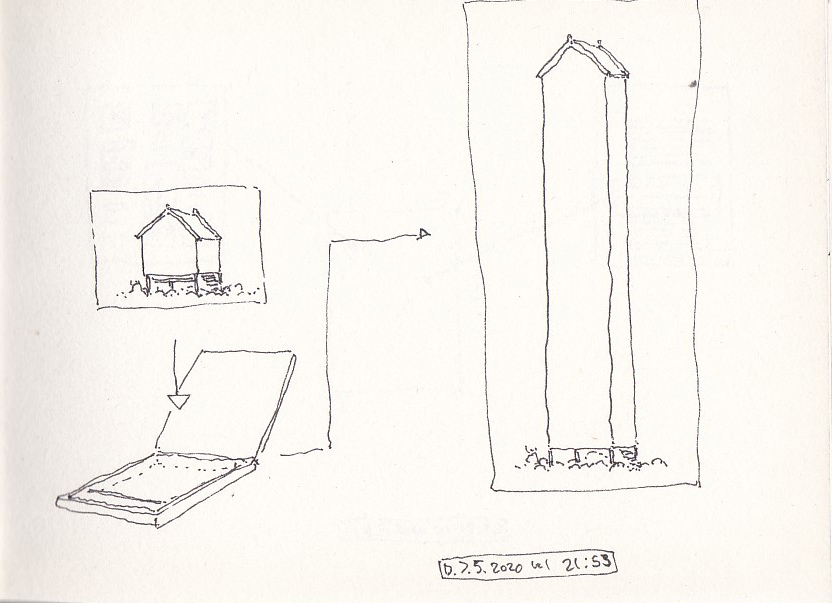 D. 7.5.2020 kl 21:53